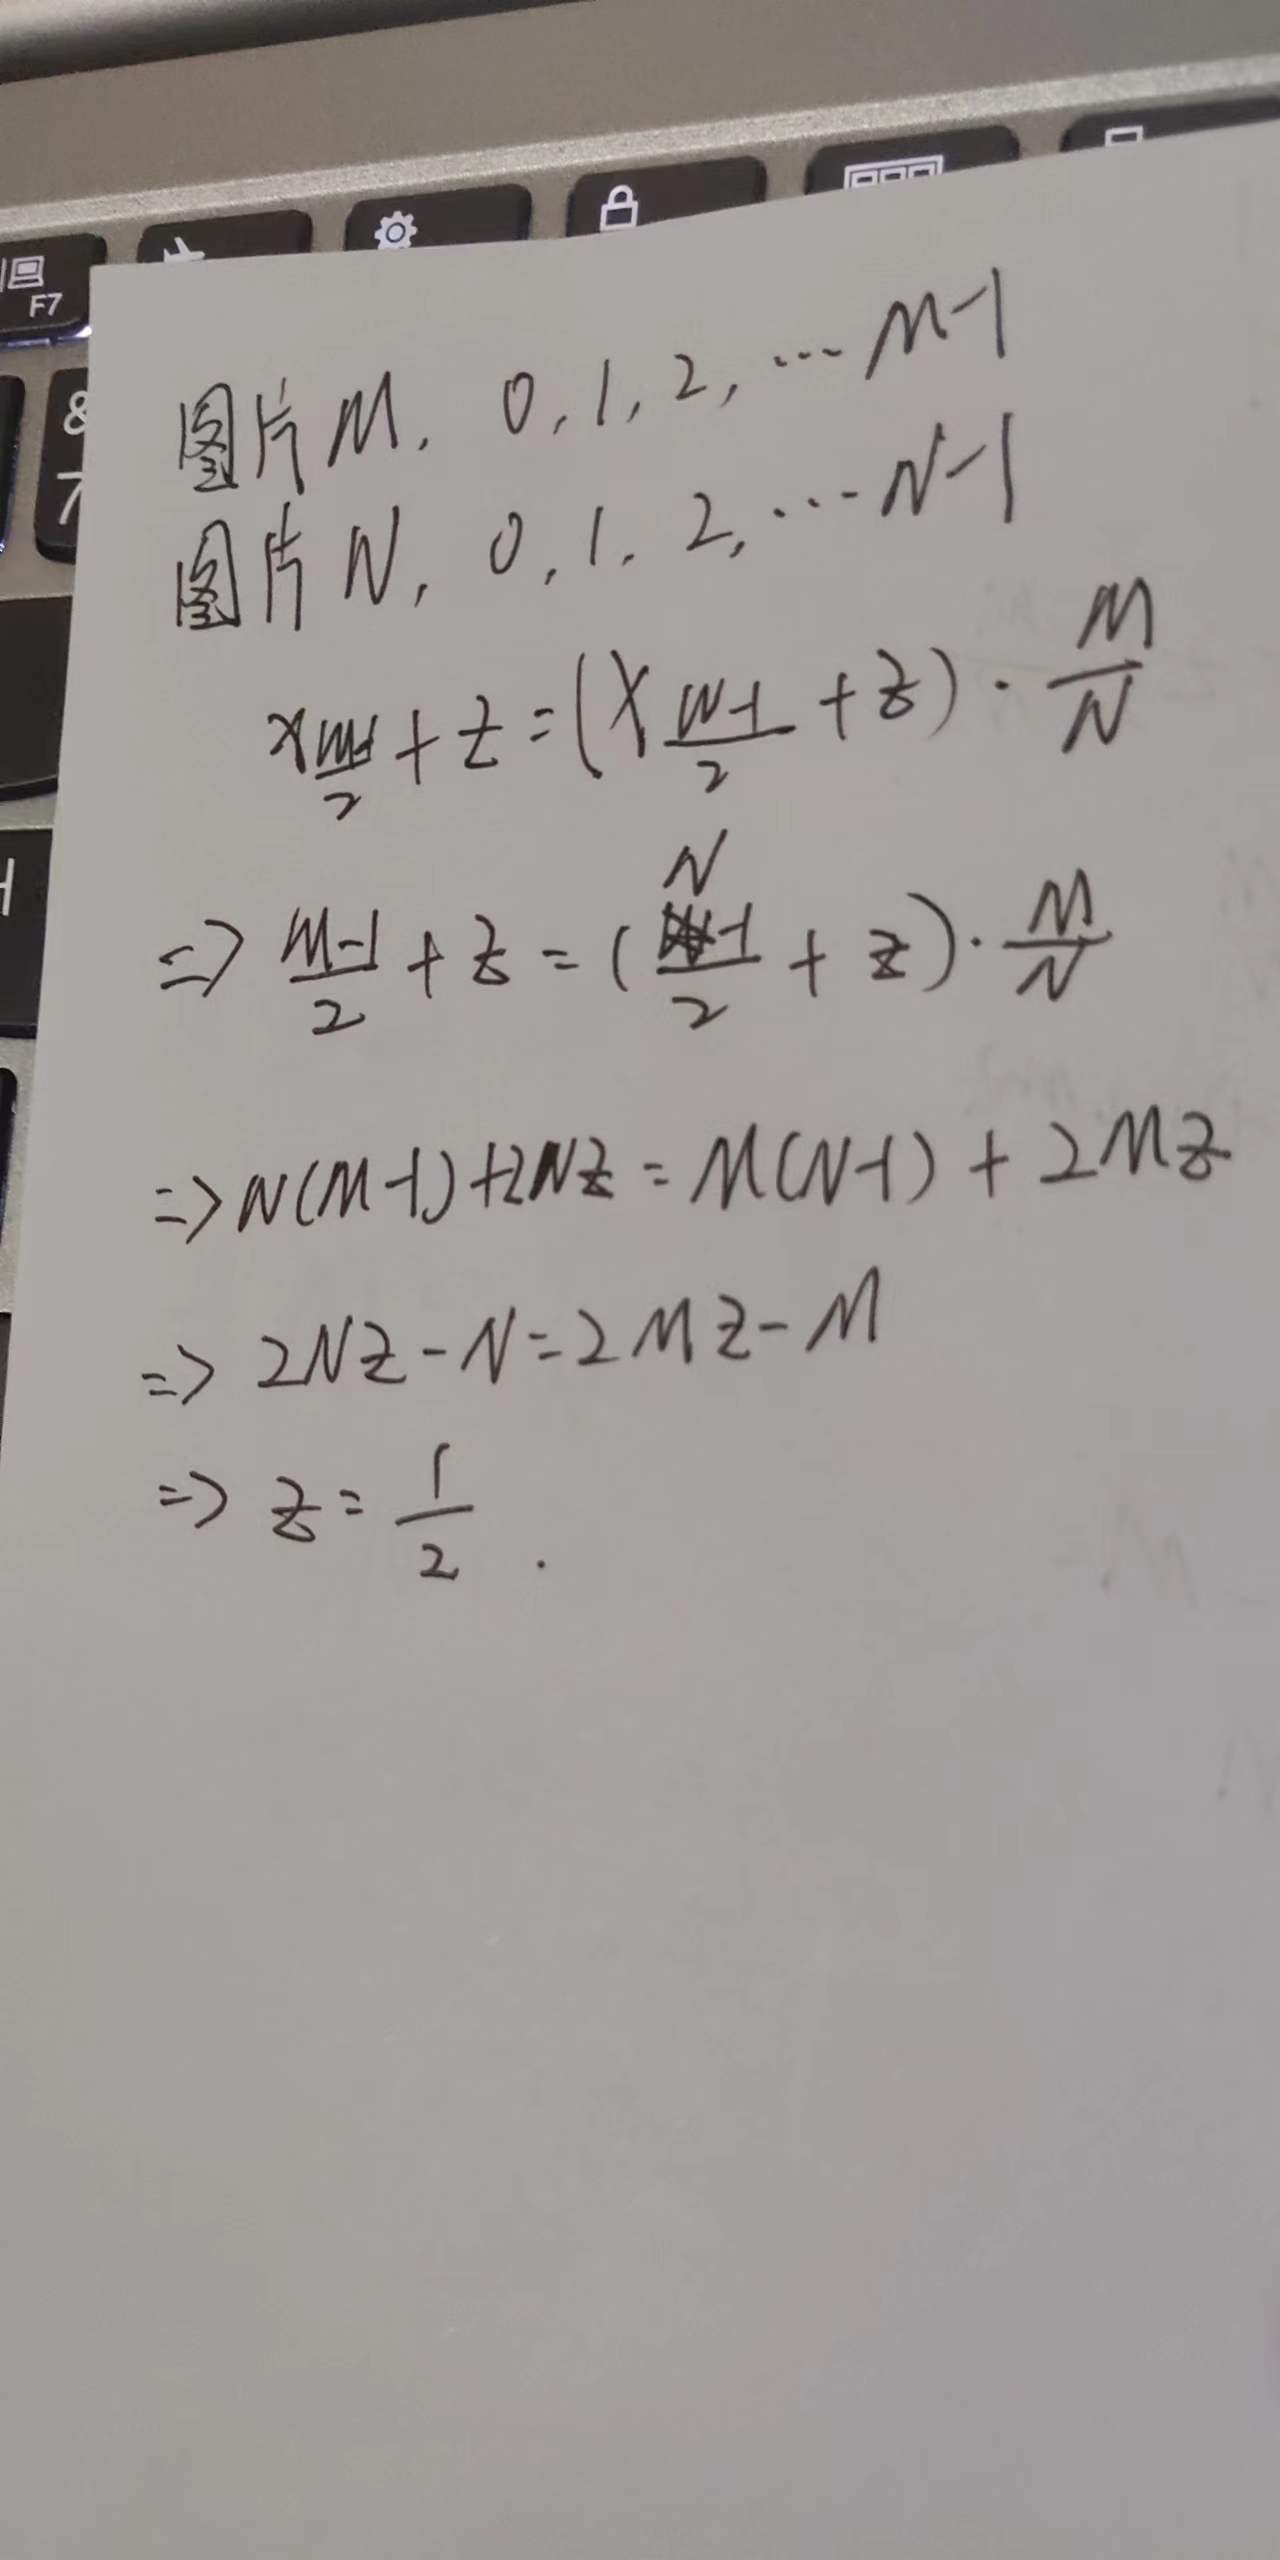 F7
&
7
H
图片M, 0, 1, 2, ... M-1
图片N, 0, 1, 2, ... N-1
x_{\frac{M-1}{2}} + z = (x_{\frac{N-1}{2}} + z) · \frac{M}{N}
=> \frac{M-1}{2} + z = (\frac{N-1}{2} + z) · \frac{M}{N}
=> N(M-1) + 2Nz = M(N-1) + 2Mz
=> 2Nz - N = 2Mz - M
=> z = \frac{1}{2} .